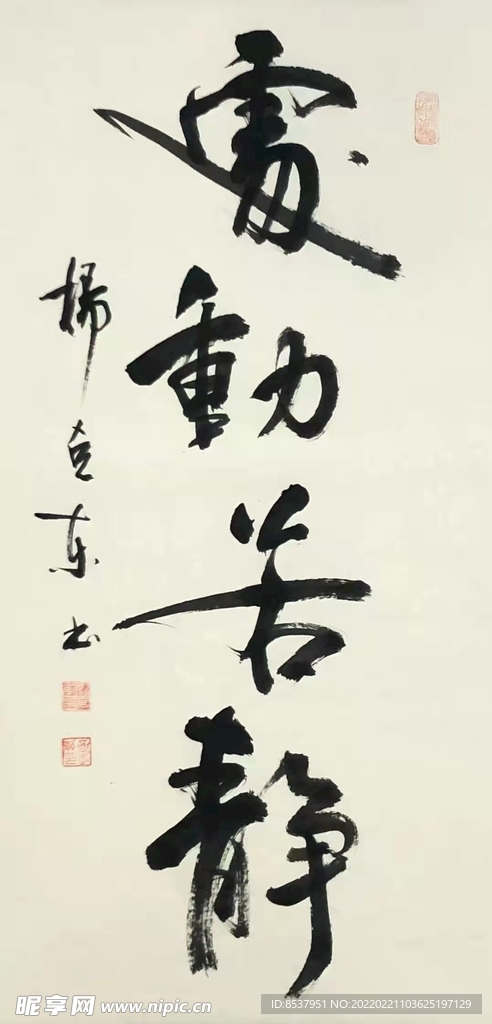 處動若靜
楊东书
昵享网 www.nipic.cn
ID:8537951 NO:20220221103625197129